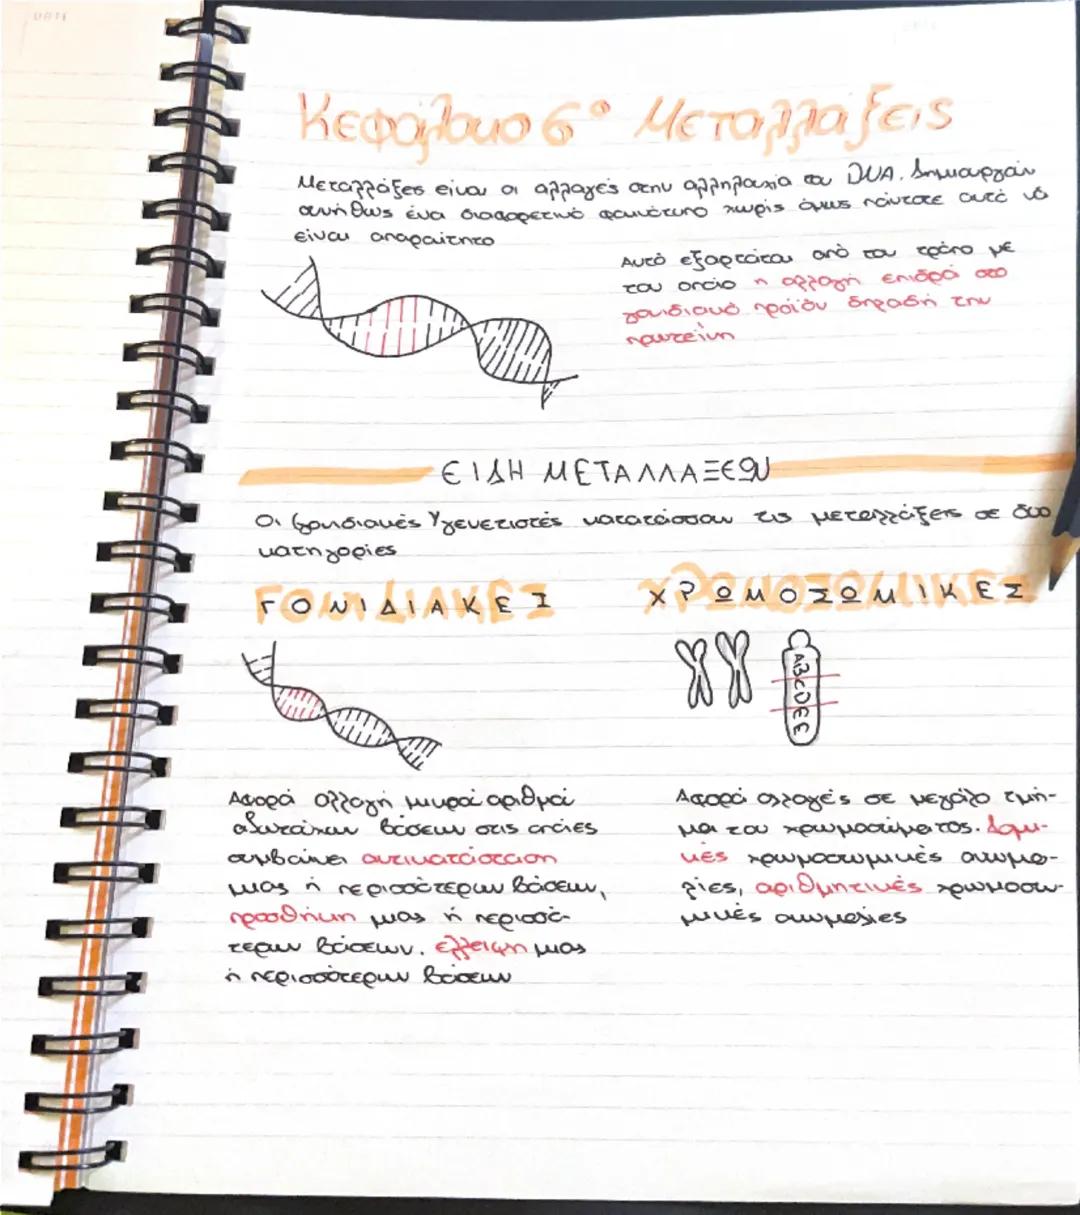 Κεφάλαιο 6° Μεταλλάξεις
Μεταλλάξεις είναι οι αλλαγές στην αλληλουχία του DNA. Δημιουργούν
συνήθως ένα διαφορετικό φαινότυπο χωρίς όμως πάντοτε αυτό να
είναι απαραίτητο
Αυτό εξαρτάται από τον τρόπο με
τον οποίο η αλλαγή επιδρά στο
γονιδιακό προϊόν δηλαδή την
πρωτεΐνη
ΕΙΔΗ ΜΕΤΑΛΛΑΞΕΩΝ
Οι γενετιστές κατατάσσουν τις μεταλλάξεις σε δύο
κατηγορίες
ΓΟΝΙΔΙΑΚΕΣ
ΧΡΩΜΟΣΩΜΙΚΕΣ
ABCDEE
Αφορά αλλαγή μικρού αριθμού
αζωτούχων βάσεων στις οποίες
συμβαίνει αντικατάσταση
μιας ή περισσότερων βάσεων,
προσθήκη μιας ή περισσό-
τερων βάσεων. έλλειψη μιας
ή περισσότερων βάσεων
Αφορά αλλαγές σε μεγάλο τμή-
μα του χρωμοσώματος. Δομι-
κές χρωμοσωμικές ανωμα-
λίες, αριθμητικές χρωμοσω-
μικές ανωμαλίες